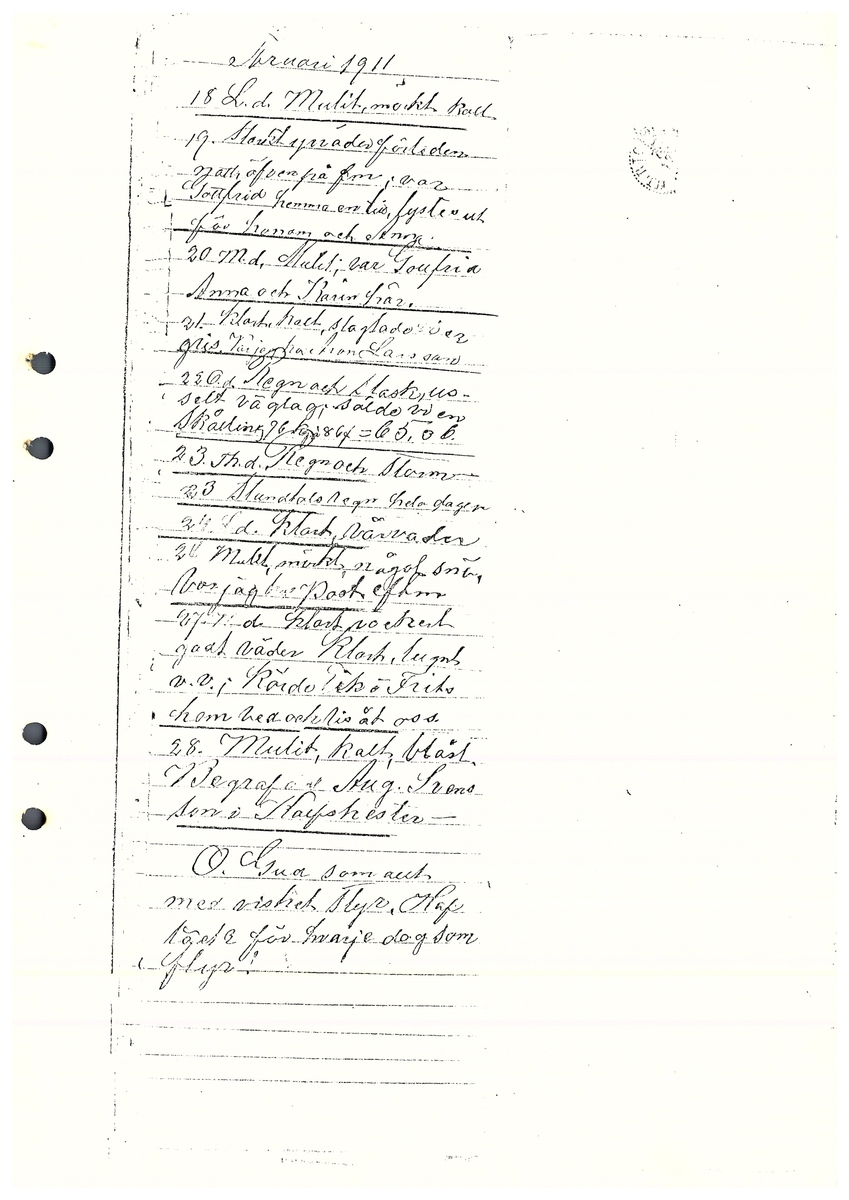 ebruari 1911
18 L.d. Mulit, mörkt kallt
19. Starkt yrväder förliden
natt, äfven på fm; var
Gottfrid hemma en tid, lyste ut
för honom och Anna.
20. M.d. Mulit; var Gottfrid
Anna och Karin här.
21. Klart, kallt, slagtade vi en
gris. Larsson
22 O.d. Regn och slask, us-
selt väglag; sålde vi en
76 kg à 86 = 65,06.
23. Th.d. Regn och storm
23 Stundtals regn hela dagen
d. Klart, vårväder
26 Mulit, mörkt, något snö,
Var jag Post efter
27. d. Klart vackert
godt väder Klart, lugnt
v.v.; Körde Frits
hem ved och ris åt oss.
28. Mulit, kallt, blåst.
Begrafdes Aug. Svens-
son i
O. Gud som allt
med vishet styr, Haf
för hvarje dag som
flyr!